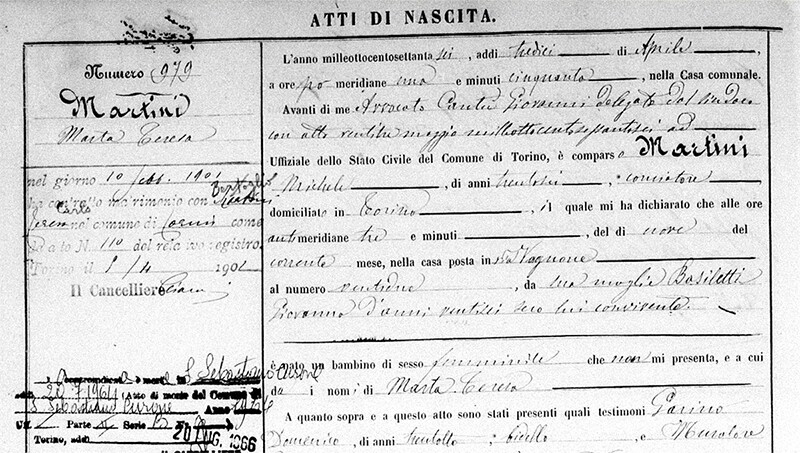 ATTI DI NASCITA.
Numero 979
Martini
Marta Teresa
nel giorno 10 1901
ha contratto matrimonio con
nel comune di Torino come
N. 110 del relativo registro.
Torino il 1901
Il Cancelliere
L'anno milleottocentosettanta sei, addì tredici di Aprile,
a ore po meridiane una e minuti cinquanta, nella Casa comunale.
Avanti di me Avvocato Cantù Giovanni delegato dal Sindaco
con atto ventitre maggio milleottocento ad
Uffiziale dello Stato Civile del Comune di Torino, è comparso Martini
Michele, di anni trentasei, conciatore
domiciliato in Torino, il quale mi ha dichiarato che alle ore
antimeridiane tre e minuti, del dì nove del
corrente mese, nella casa posta in via Vagnone
al numero ventuno, da sua moglie Basiletti
Giovanna d'anni ventisei seco lui convivente.
è nato un bambino di sesso femminile che non mi presenta, e a cui
da i nomi di Marta Teresa
A quanto sopra e a questo atto sono stati presenti quali testimoni
Domenico, di anni trentotto, bidello, e Muratore
S. Sebastiano Curone
20/7/1964 Atto di morte del Comune di
S. Sebastiano Curone Anno 1964
Uff. Parte II Serie B N.
Torino, addì 20 1966